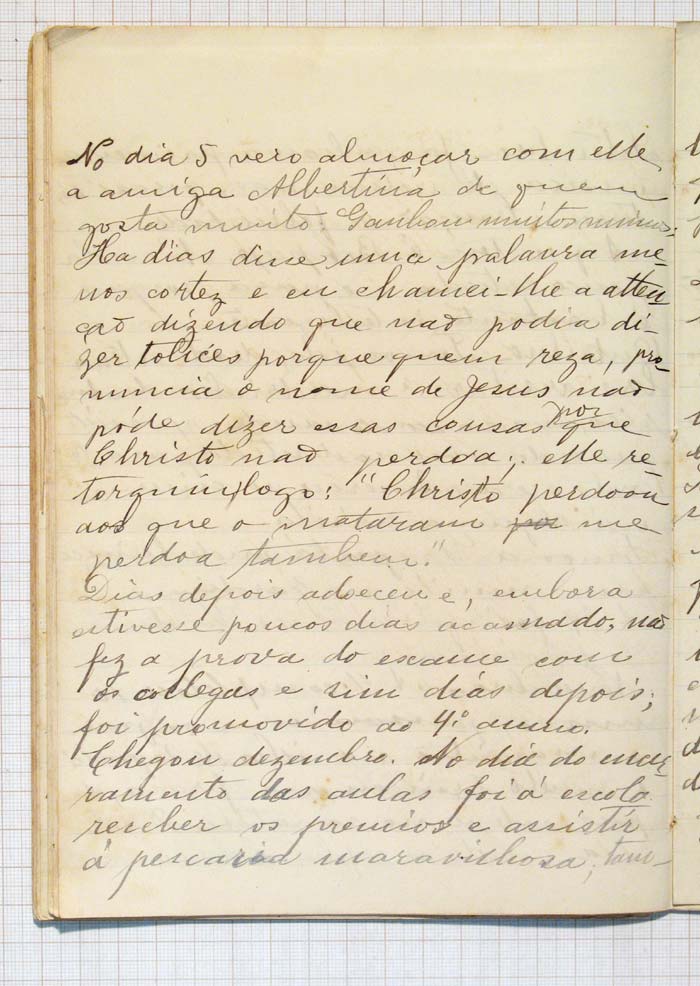 No dia 5 veio almoçar com elle
a amiga Albertina de quem
gosta muito. Ganhou muitos mimos.
Ha dias disse uma palavra me-
nos cortez e eu chamei-lhe a atten
ção dizendo que não podia di-
zer tolices porque quem reza, pro-
nuncia o nome de Jesus não
póde dizer essas cousas por que
Christo não perdoa; elle re-
torquiu logo: "Christo perdoou
aos que o mataram me
perdoa tambem."
Dias depois adoeceu e, embora
estivesse poucos dias acamado, não
fez a prova do exame com
os collegas e sim dias depois;
foi promovido ao 4.º anno.
Chegou dezembro. No dia do encer
ramento das aulas foi á escola
receber os premios e assistir
á pescaria maravilhosa; tam-